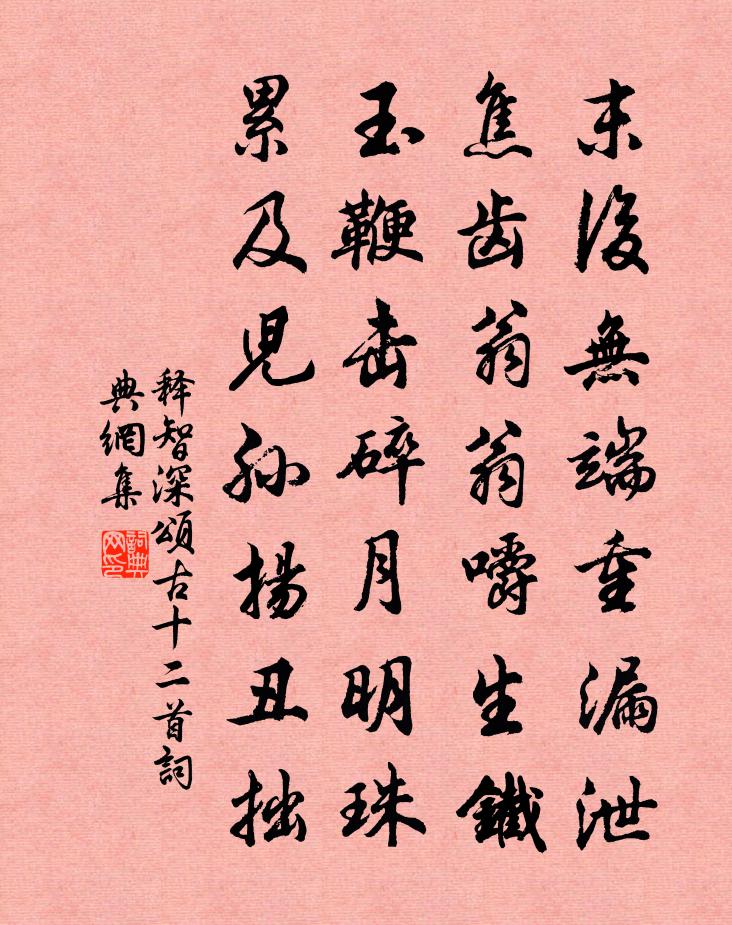 末後無端重漏泄
焦齿翁翁嚼生鐵
玉鞭击碎月明珠
累及兒孙揚丑拙
释智深頌古十二首詞
典網集
詞典网印